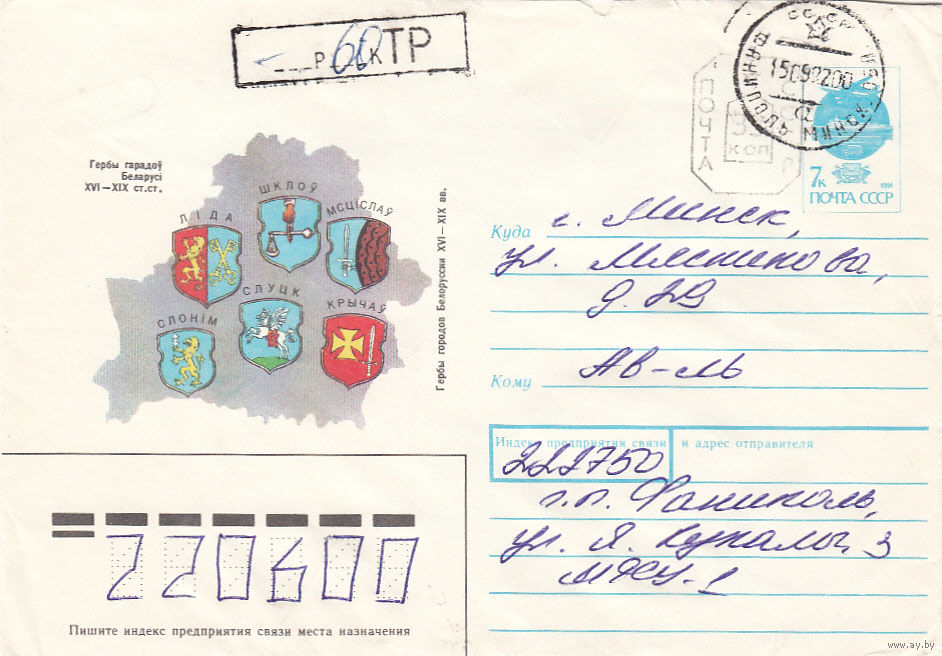 р 60 к ТР
СССР
МИНСК
15 09 92 200
ПОЧТА
КОП
Р
7к
1991
ПОЧТА СССР
Гербы гарадоў
Беларусі
XVI—XIX ст.ст.
ЛІДА
ШКЛОЎ
МСЦІСЛАЎ
СЛОНІМ
СЛУЦК
КРЫЧАЎ
Гербы городов Белоруссии XVI—XIX вв.
Куда г. Минск,
ул. Мясникова,
д. 29
Кому Ав-ль
Индекс предприятия связи и адрес отправителя
222750
г.п. Фаниполь,
ул. Я. Купалы, 3
220600
Пишите индекс предприятия связи места назначения
www.ay.by